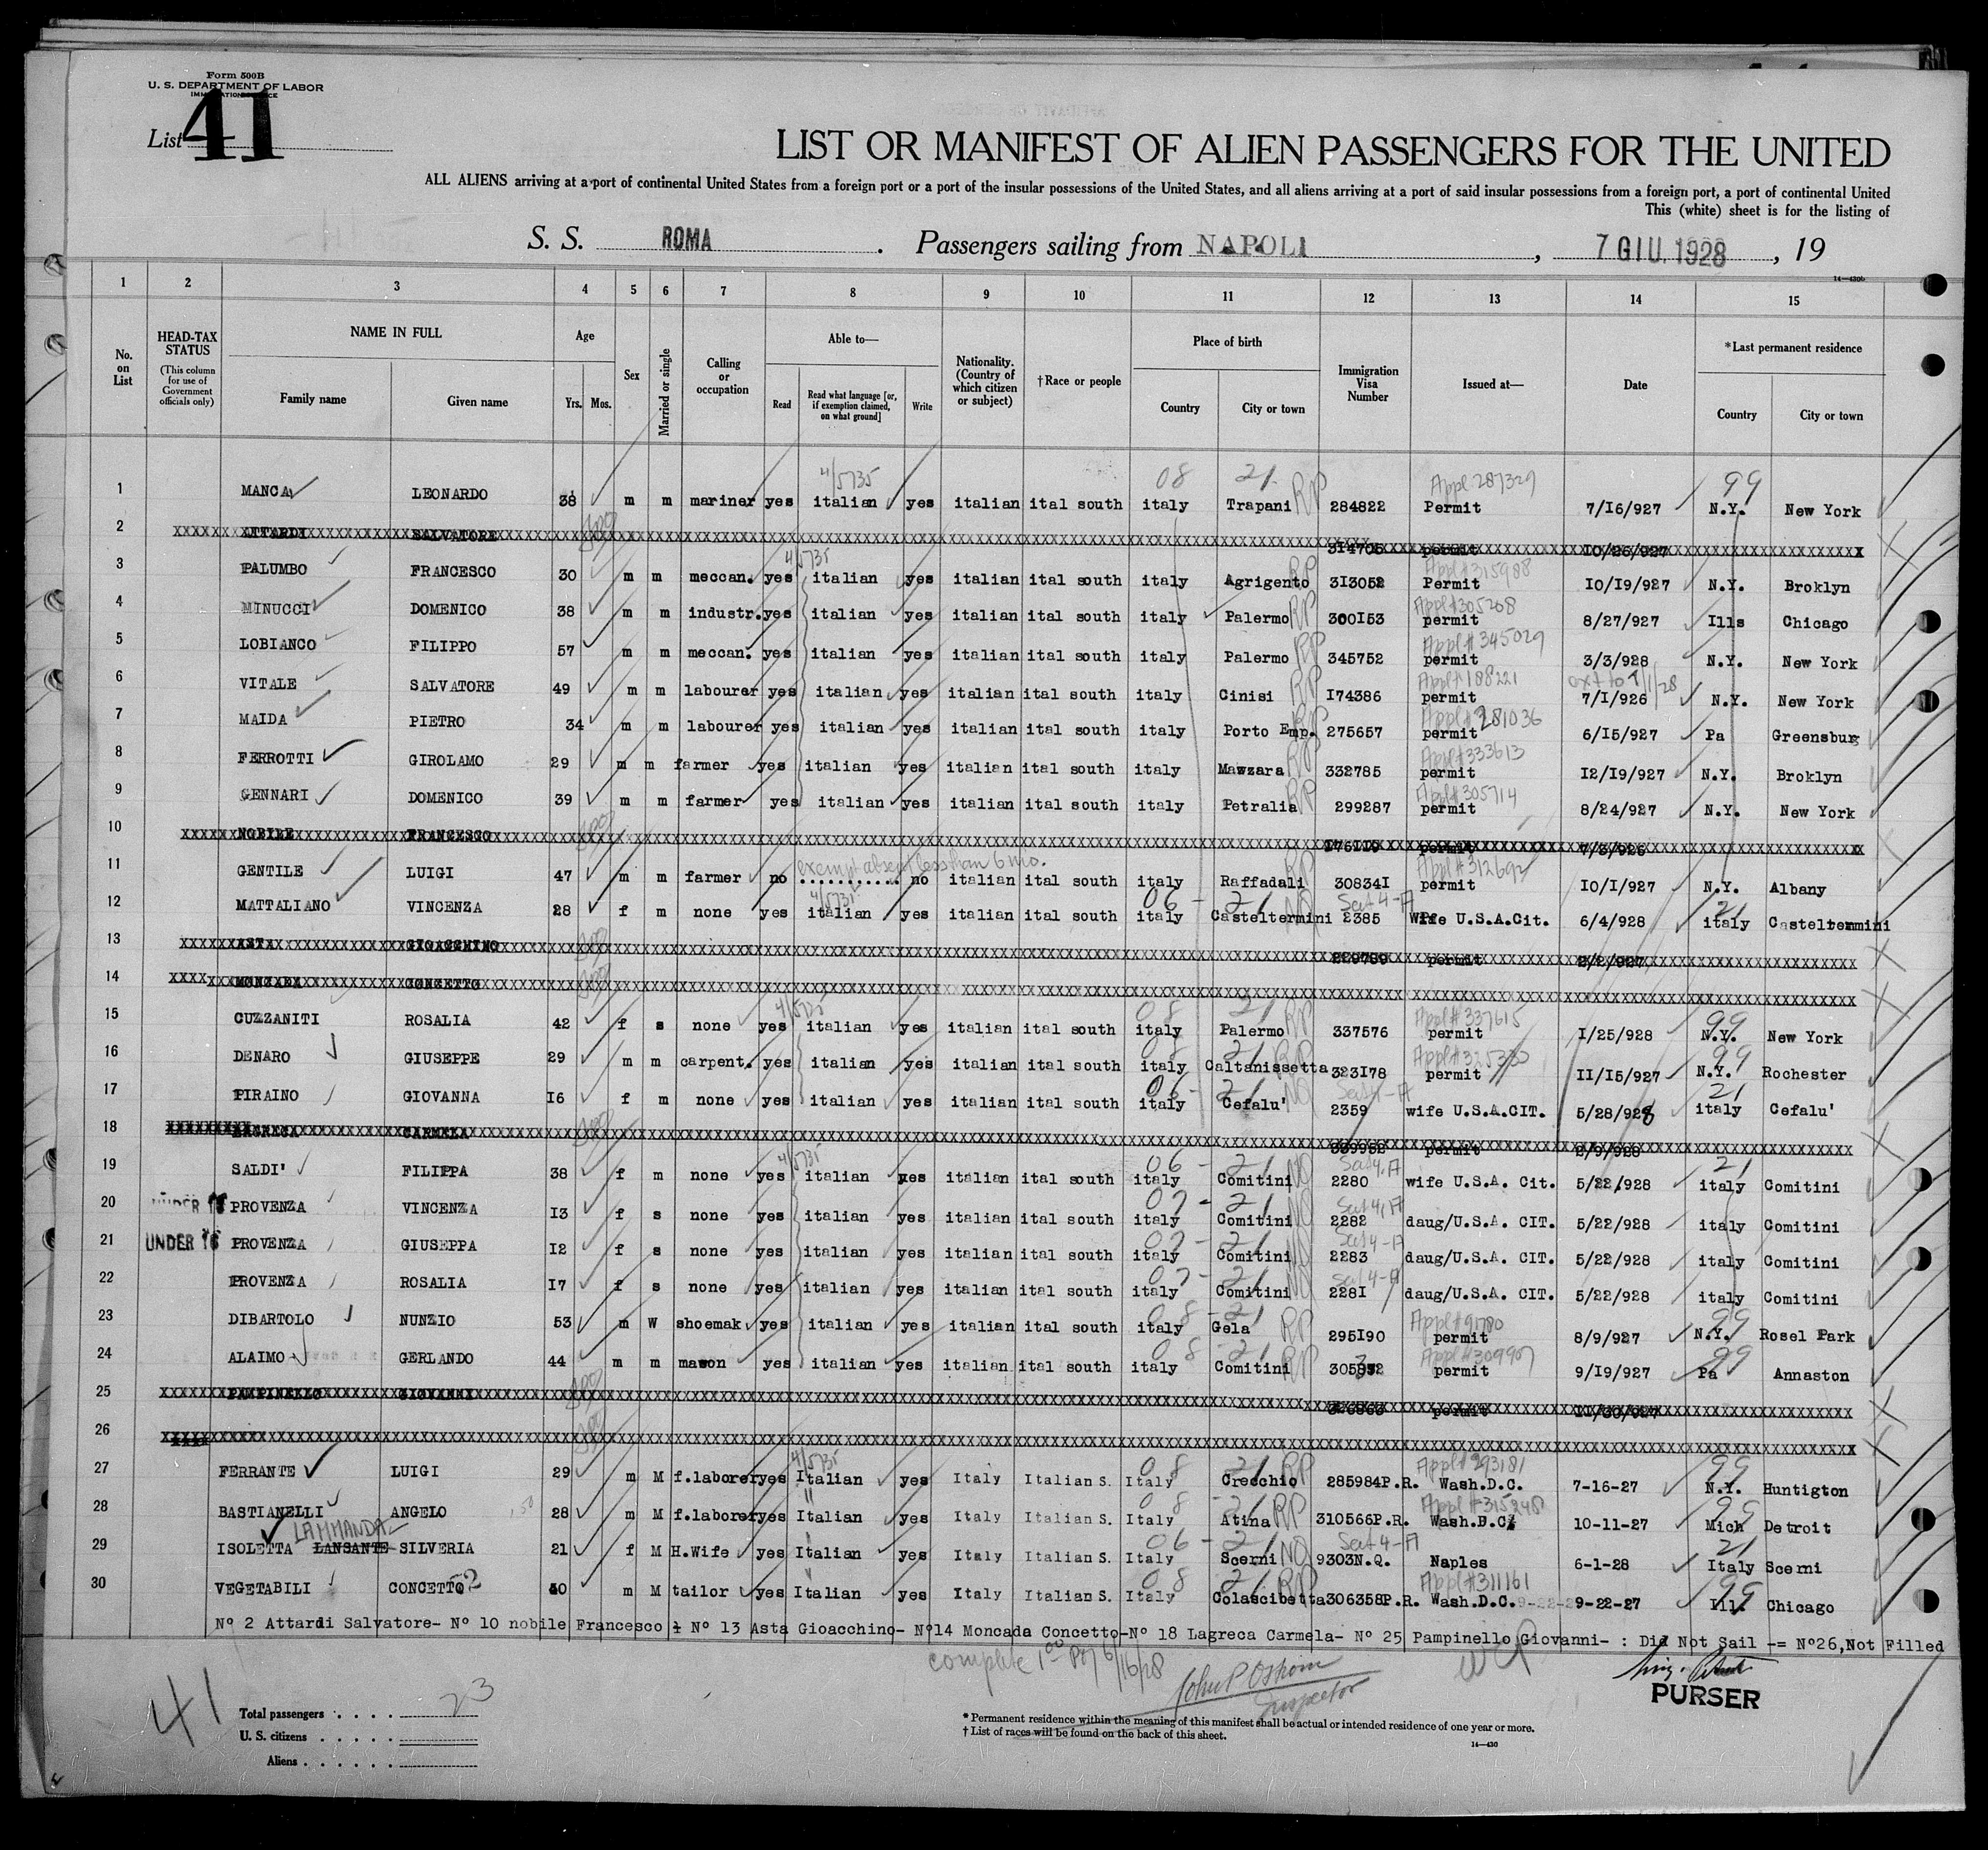 Form 500B
U. S. DEPARTMENT OF LABOR
List 41
LIST OR MANIFEST OF ALIEN PASSENGERS FOR THE UNITED
ALL ALIENS arriving at a port of continental United States from a foreign port or a port of the insular possessions of the United States, and all aliens arriving at a port of said insular possessions from a foreign port, a port of continental United
This (white) sheet is for the listing of
S. S. ROMA . Passengers sailing from NAPOLI , 7 GIU. 1928 , 19
14—430b
1 2 3 4 5 6 7 8 9 10 11 12 13 14 15
No. on List
HEAD-TAX STATUS (This column for use of Government officials only)
NAME IN FULL
Family name Given name
Age
Yrs. Mos.
Sex
Married or single
Calling or occupation
Able to—
Read Read what language [or, if exemption claimed, on what ground] Write
Nationality. (Country of which citizen or subject)
†Race or people
Place of birth
Country City or town
Immigration Visa Number
Issued at—
Date
*Last permanent residence
Country City or town
4/5735 08 21 Appl 287329 99
1 MANCA LEONARDO 38 m m mariner yes italian yes italian ital south italy Trapani RP 284822 Permit 7/16/927 N.Y. New York
2 ATTARDI SALVATORE 314705 permit 10/26/927
4/5735 Appl#315988
3 PALUMBO FRANCESCO 30 m m meccan. yes italian yes italian ital south italy Agrigento RP 313052 Permit 10/19/927 N.Y. Broklyn
Appl#305208
4 MINUCCI DOMENICO 38 m m industr. yes italian yes italian ital south italy Palermo RP 300153 permit 8/27/927 Ills Chicago
Appl#345029
5 LOBIANCO FILIPPO 57 m m meccan. yes italian yes italian ital south italy Palermo RP 345752 permit 3/3/928 N.Y. New York
Appl#188221 ext to 7/1/28
6 VITALE SALVATORE 49 m m labourer yes italian yes italian ital south italy Cinisi RP 174386 permit 7/1/926 N.Y. New York
Appl#281036
7 MAIDA PIETRO 34 m m labourer yes italian yes italian ital south italy Porto Emp. RP 275657 permit 6/15/927 Pa Greensburg
Appl#333613
8 FERROTTI GIROLAMO 29 m m farmer yes italian yes italian ital south italy Mawzara RP 332785 permit 12/19/927 N.Y. Broklyn
Appl#305714
9 GENNARI DOMENICO 39 m m farmer yes italian yes italian ital south italy Petralia RP 299287 permit 8/24/927 N.Y. New York
10 NOBILE FRANCESCO permit 7/3/926
exempt absent less than 6 mo. Appl#312692
11 GENTILE LUIGI 47 m m farmer no ........... no italian ital south italy Raffadali RP 308341 permit 10/1/927 N.Y. Albany
4/5735 06 - 21 NQ Sect 4-A 21
12 MATTALIANO VINCENZA 28 f m none yes italian yes italian ital south italy Casteltermini 2385 Wife U.S.A.Cit. 6/4/928 italy Casteltermini
13 ASTA GIOACCHINO 229789 permit 2/2/927
14 MONCADA CONCETTO
4/5735 08 21 Appl#337615 99
15 CUZZANITI ROSALIA 42 f s none yes italian yes italian ital south italy Palermo RP 337576 permit 1/25/928 N.Y. New York
21 99
16 DENARO GIUSEPPE 29 m m carpent. yes italian yes italian ital south italy Caltanissetta RP 323178 permit 11/15/927 N.Y. Rochester
06 - 21 Sect 4-A 21
17 PIRAINO GIOVANNA 16 f m none yes italian yes italian ital south italy Cefalu' NQ 2359 wife U.S.A.CIT. 5/28/928 italy Cefalu'
18 LAGRECA CARMELA 339952 permit 2/9/928
4/5735 06 - 21 Sect 4, A 21
19 SALDI' FILIPPA 38 f m none yes italian yes italian ital south italy Comitini NQ 2280 wife U.S.A. Cit. 5/22/928 italy Comitini
07 - 21 Sect 4, A
20 UNDER 16 PROVENZA VINCENZA 13 f s none yes italian yes italian ital south italy Comitini NQ 2282 daug/U.S.A. CIT. 5/22/928 italy Comitini
07 - 21 Sect 4-A
21 UNDER 16 PROVENZA GIUSEPPA 12 f s none yes italian yes italian ital south italy Comitini NQ 2283 daug/U.S.A. CIT. 5/22/928 italy Comitini
07 - 21 Sect 4-A
22 PROVENZA ROSALIA 17 f s none yes italian yes italian ital south italy Comitini NQ 2281 daug/U.S.A. CIT. 5/22/928 italy Comitini
08 - 21 99
23 DIBARTOLO NUNZIO 53 m W shoemak. yes italian yes italian ital south italy Gela RP 295190 permit 8/9/927 N.Y. Rosel Park
08 - 21 Appl#309907 99
24 ALAIMO GERLANDO 44 m m mason yes italian yes italian ital south italy Comitini RP permit 9/19/927 Pa Annaston
25 PAMPINELLO GIOVANNI permit 11/30/927
26
4/5735 08 21 Appl#293181 99
27 FERRANTE LUIGI 29 m M f.laborer yes Italian yes Italy Italian S. Italy Crecchio RP 285984P.R. Wash.D.C. 7-16-27 N.Y. Huntigton
" 08 - 21 99
28 BASTIANELLI ANGELO 28 m M f.laborer yes Italian yes Italy Italian S. Italy Atina RP 310566P.R. Wash.D.C. 10-11-27 Mich Detroit
LAMMANDA " 06 - 21 Sect 4-A 21
29 ISOLETTA LANSANTE SILVERIA 21 f M H.Wife yes Italian yes Italy Italian S. Italy Scerni NQ 9303N.Q. Naples 6-1-28 Italy Scerni
" 08 21 Appl#311161 99
30 VEGETABILI CONCETTO 40 m M tailor yes Italian yes Italy Italian S. Italy Colascibetta RP 306358P.R. Wash.D.C. 9-22-27 Ill. Chicago
Nº 2 Attardi Salvatore- Nº 10 nobile Francesco - Nº 13 Asta Gioacchino- Nº14 Moncada Concetto-Nº 18 Lagreca Carmela- Nº 25 Pampinello Giovanni- : Did Not Sail -= Nº26,Not Filled
complete 6/16/28
John P Osborn
Inspector
PURSER
41
Total passengers . . . . 23
U. S. citizens . . . . .
Aliens . . . . . .
* Permanent residence within the meaning of this manifest shall be actual or intended residence of one year or more.
† List of races will be found on the back of this sheet.
14—430